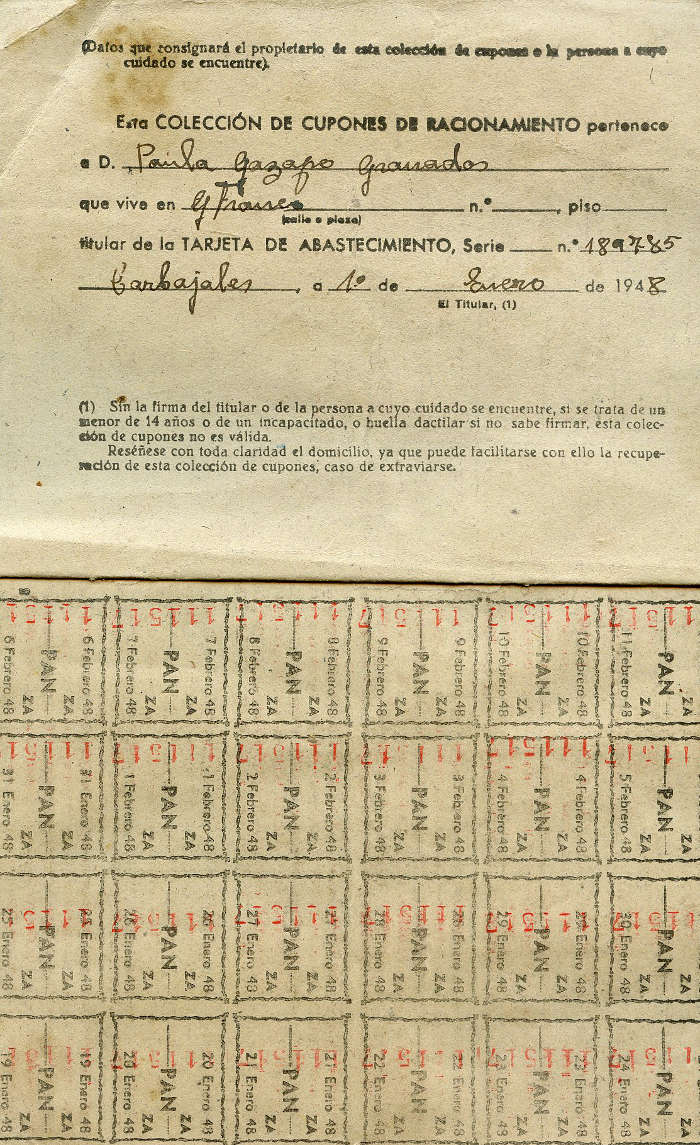 (Datos que consignará el propietario de esta colección de cupones o la persona a cuyo
cuidado se encuentre).
Esta COLECCIÓN DE CUPONES DE RACIONAMIENTO pertenece
a D. Paula Gazapo Granados
que vive en G Franco n.º , piso
(calle o plaza)
titular de la TARJETA DE ABASTECIMIENTO, Serie n.º 189785
Carbajales, a 1º de Enero de 1948
El Titular, (1)
(1) Sin la firma del titular o de la persona a cuyo cuidado se encuentre, si se trata de un
menor de 14 años o de un incapacitado, o huella dactilar si no sabe firmar, esta colec-
ción de cupones no es válida.
Reséñese con toda claridad el domicilio, ya que puede facilitarse con ello la recupe-
ración de esta colección de cupones, caso de extraviarse.
6 Febrero 48 ZA PAN ZA 6 Febrero 48
7 Febrero 48 ZA PAN ZA 7 Febrero 48
8 Febrero 48 ZA PAN ZA 8 Febrero 48
9 Febrero 48 ZA PAN ZA 9 Febrero 48
10 Febrero 48 ZA PAN ZA 10 Febrero 48
11 Febrero 48 ZA PAN ZA
31 Enero 48 ZA PAN ZA 31 Enero 48
1 Febrero 48 ZA PAN ZA 1 Febrero 48
2 Febrero 48 ZA PAN ZA 2 Febrero 48
3 Febrero 48 ZA PAN ZA 3 Febrero 48
4 Febrero 48 ZA PAN ZA 4 Febrero 48
5 Febrero 48 ZA PAN ZA
25 Enero 48 ZA PAN ZA 25 Enero 48
26 Enero 48 ZA PAN ZA 26 Enero 48
27 Enero 48 ZA PAN ZA 27 Enero 48
28 Enero 48 ZA PAN ZA 28 Enero 48
29 Enero 48 ZA PAN ZA 29 Enero 48
30 Enero 48 ZA PAN ZA
19 Enero 48 ZA PAN ZA 19 Enero 48
20 Enero 48 ZA PAN ZA 20 Enero 48
21 Enero 48 ZA PAN ZA 21 Enero 48
22 Enero 48 ZA PAN ZA 22 Enero 48
23 Enero 48 ZA PAN ZA 23 Enero 48
24 Enero 48 ZA PAN ZA